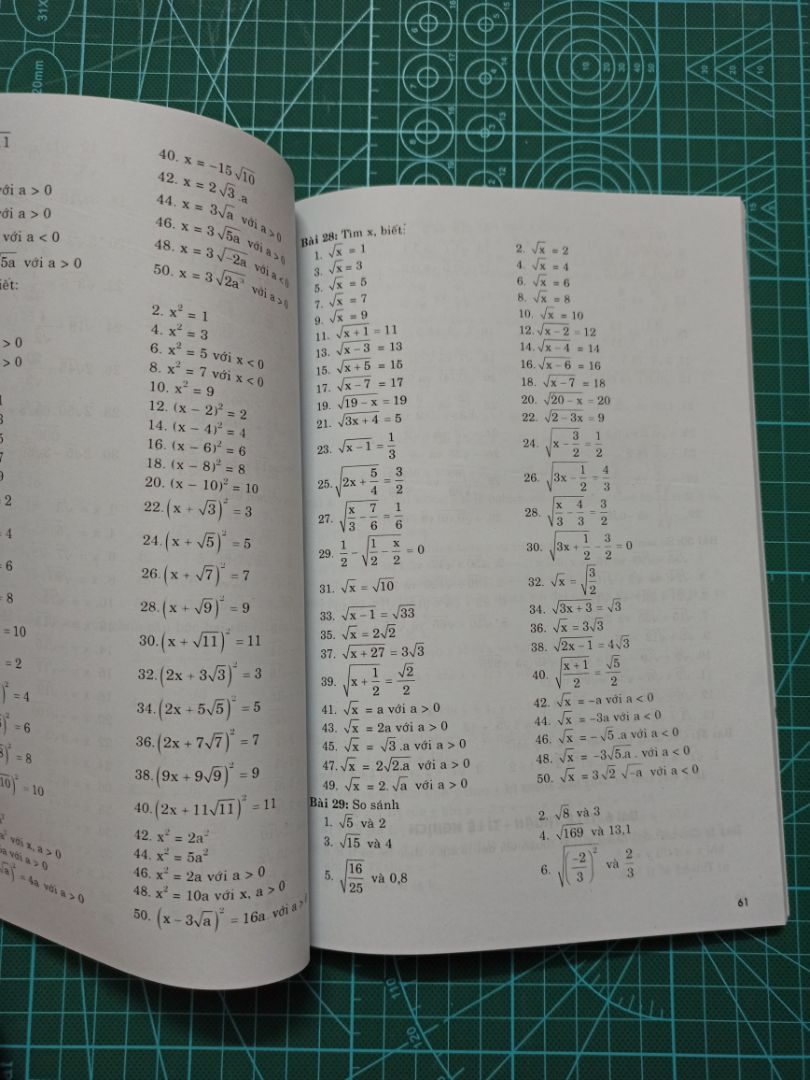 31X
20mm
11
với a > 0
với a > 0
với a < 0
√5a với a > 0
iết:
> 0
> 0
1
3
5
7
9
= 2
= 4
= 6
= 8
= 10
= 2
)² = 4
)² = 6
)² = 8
√10)² = 10
a²
a² với x, a > 0
a với a > 0
√a)² = 4a với a > 0
40. x = −15√10
42. x = 2√3.a
44. x = 3√a với a > 0
46. x = 3√5a với a > 0
48. x = 3√−2a với a < 0
50. x = 3√2a³ với a > 0
2. x² = 1
4. x² = 3
6. x² = 5 với x < 0
8. x² = 7 với x < 0
10. x² = 9
12. (x − 2)² = 2
14. (x − 4)² = 4
16. (x − 6)² = 6
18. (x − 8)² = 8
20. (x − 10)² = 10
22. (x + √3)² = 3
24. (x + √5)² = 5
26. (x + √7)² = 7
28. (x + √9)² = 9
30. (x + √11)² = 11
32. (2x + 3√3)² = 3
34. (2x + 5√5)² = 5
36. (2x + 7√7)² = 7
38. (9x + 9√9)² = 9
40. (2x + 11√11)² = 11
42. x² = 2a²
44. x² = 5a²
46. x² = 2a với a > 0
48. x² = 10a với x, a > 0
50. (x − 3√a)² = 16a với a >
Bài 28: Tìm x, biết:
1. √x = 1 2. √x = 2
3. √x = 3 4. √x = 4
5. √x = 5 6. √x = 6
7. √x = 7 8. √x = 8
9. √x = 9 10. √x = 10
11. √(x + 1) = 11 12. √(x − 2) = 12
13. √(x − 3) = 13 14. √(x − 4) = 14
15. √(x + 5) = 15 16. √(x − 6) = 16
17. √(x − 7) = 17 18. √(x − 7) = 18
19. √(19 − x) = 19 20. √(20 − x) = 20
21. √(3x + 4) = 5 22. √(2 − 3x) = 9
23. √(x − 1) = 1/3 24. √(x − 3/2) = 1/2
25. √(2x + 5/4) = 3/2 26. √(3x − 1/2) = 4/3
27. √(x/3 − 7/6) = 1/6 28. √(x/3 − 4/3) = 3/2
29. 1/2 − √(1/2 − x/2) = 0 30. √(3x + 1/2) − 3/2 = 0
31. √x = √10 32. √x = √(3/2)
33. √(x − 1) = √33 34. √(3x + 3) = √3
35. √x = 2√2 36. √x = 3√3
37. √(x + 27) = 3√3 38. √(2x − 1) = 4√3
39. √(x + 1/2) = √2/2 40. √((x + 1)/2) = √5/2
41. √x = a với a > 0 42. √x = −a với a < 0
43. √x = 2a với a > 0 44. √x = −3a với a < 0
45. √x = √3.a với a > 0 46. √x = −√5.a với a < 0
47. √x = 2√2.a với a > 0 48. √x = −3√5.a. với a < 0
49. √x = 2.√a với a > 0 50. √x = 3√2 √−a với a < 0
Bài 29: So sánh
1. √5 và 2 2. √8 và 3
3. √15 và 4 4. √169 và 13,1
5. √(16/25) và 0,8 6. √((−2/3)²) và 2/3
61
110
120